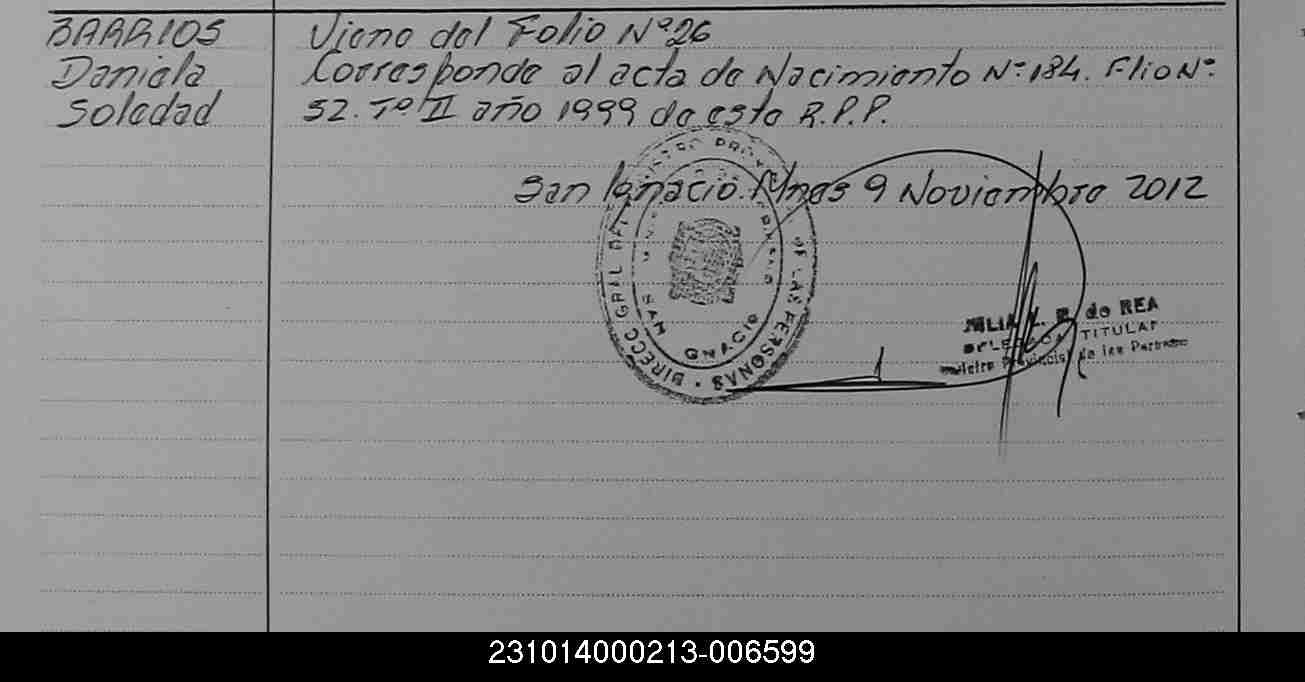 BARRIOS
Daniela
Soledad
Viene del Folio Nº26
Corresponde al acta de Nacimiento Nº184. Flio Nº
52. Tº II año 1999 de esta R.P.P.
San Ignacio. Mnes 9 Noviembre 2012
DIRECC GRAL DEL REGISTRO PROV DE LAS PERSONAS
SAN IGNACIO
JULIA de REA
TITULAR
Provincial de las Personas
231014000213-006599